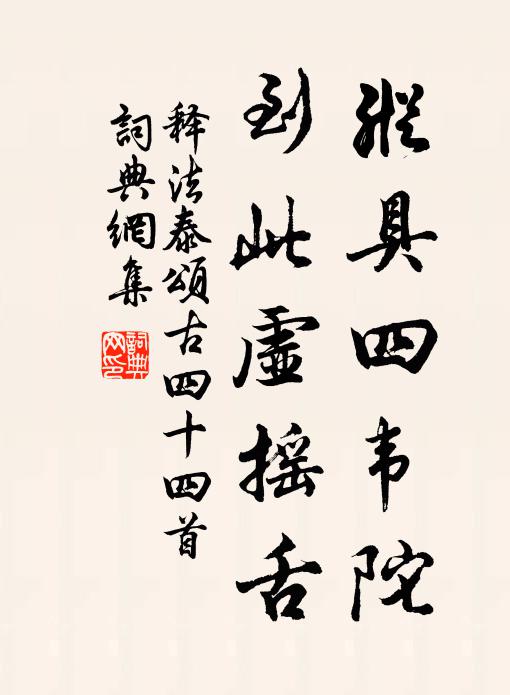 縱具四韦陀
到此虛摇舌
释法泰頌古四十四首
詞典網集
詞典網印